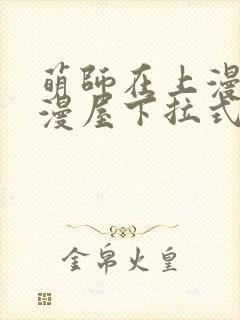 萌师在上漫
漫屋下拉式
金帛火皇